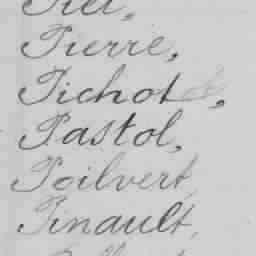 Piel,
Pierre,
Pichot,
Pastol,
Poilvert,
Pinault,